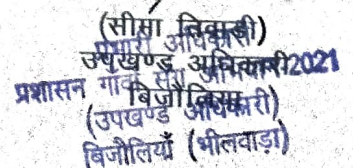 (सीमा तिवाड़ी)
प्रभारी अधिकारी
उपखण्ड अधिकारी
प्रशासन गांवों संग अभियान 2021
बिजौलिया
(उपखण्ड अधिकारी)
बिजौलियाँ (भीलवाड़ा)